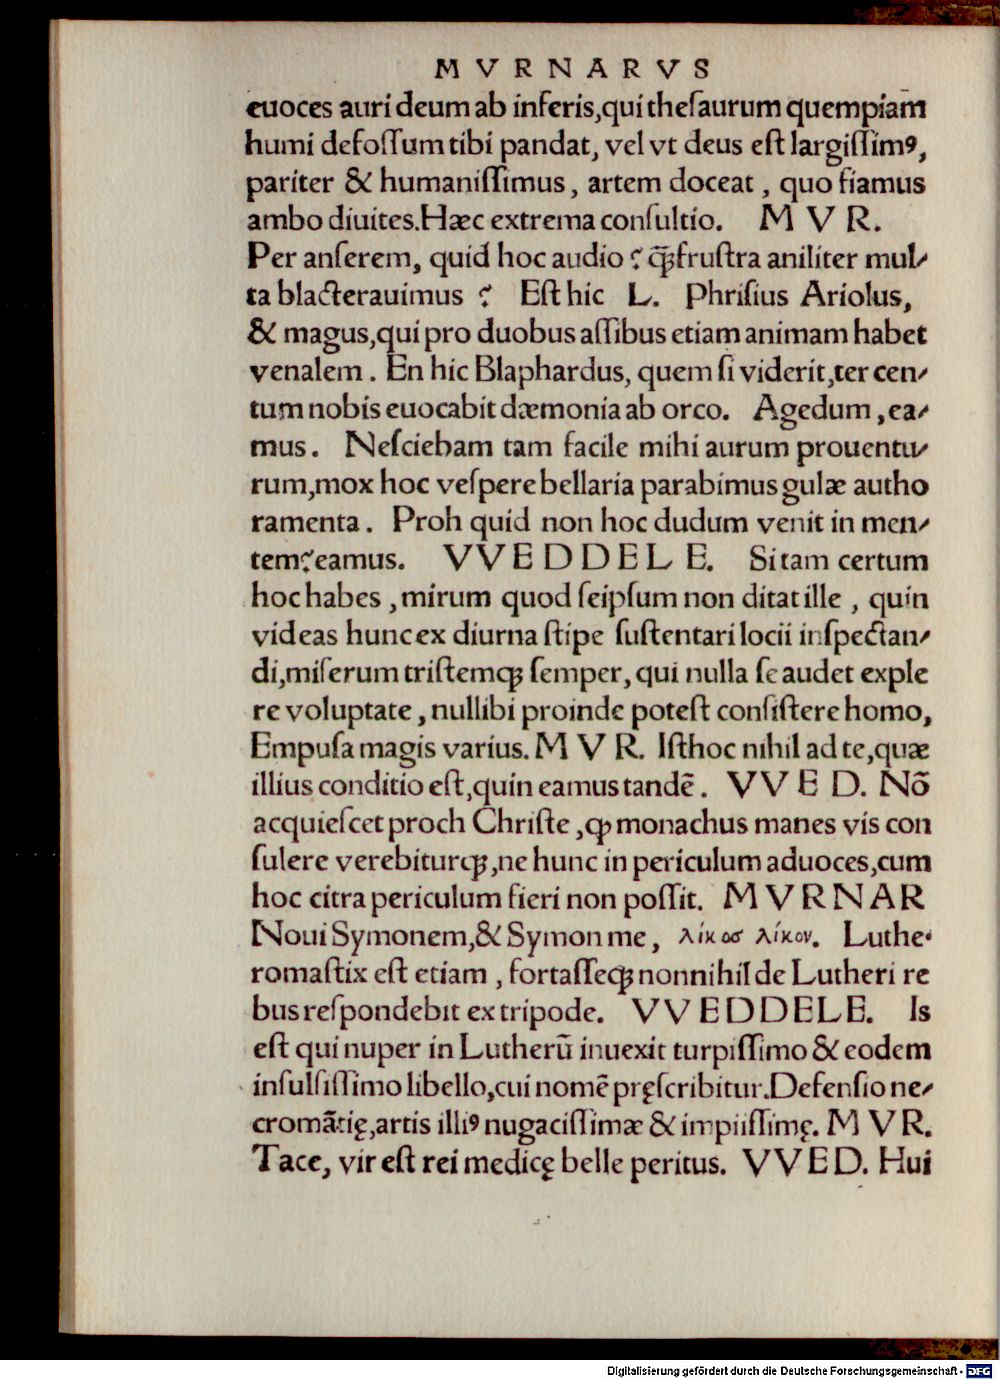 MVRNARVS
euoces auri deum ab inferis,qui theſaurum quempiam
humi defoſſum tibi pandat, vel vt deus eſt largiſſimꝰ,
pariter & humaniſſimus, artem doceat, quo fiamus
ambo diuites.Hæc extrema conſultio. MVR.
Per anſerem, quid hoc audio? q̃ꝫ fruſtra aniliter mul-
ta blacterauimus? Eſt hic L. Phriſius Ariolus,
& magus,qui pro duobus aſſibus etiam animam habet
venalem. En hic Blaphardus, quem ſi viderit,ter cen-
tum nobis euocabit dæmonia ab orco. Agedum,ea-
mus. Neſciebam tam facile mihi aurum prouentu-
rum,mox hoc veſpere bellaria parabimus gulæ autho
ramenta. Proh quid non hoc dudum venit in men-
tem?eamus. VVEDDELE. Si tam certum
hoc habes, mirum quod ſeipſum non ditat ille, quin
videas hunc ex diurna ſtipe ſuſtentari locii inſpectan-
di,miſerum triſtemqꝫ ſemper, qui nulla ſe audet exple
re voluptate, nullibi proinde poteſt conſiſtere homo,
Empuſa magis varius. MVR. Iſthoc nihil ad te,quæ
illius conditio eſt,quin eamus tandē. VVED. Nō
acquieſcet proch Chriſte, ꝙ monachus manes vis con
ſulere verebiturqꝫ,ne hunc in periculum aduoces,cum
hoc citra periculum fieri non poſſit. MVRNAR
Noui Symonem,& Symon me, λίκοσ λίκον. Luthe-
romaſtix eſt etiam, fortaſſeqꝫ nonnihil de Lutheri re
bus reſpondebit ex tripode. VVEDDELE. Is
eſt qui nuper in Lutherū inuexit turpiſſimo & eodem
inſulſiſſimo libello,cui nomē pręſcribitur.Defenſio ne-
cromātię,artis illiꝰ nugaciſſimæ & impiiſſimę. MVR.
Tace, vir eſt rei medicę belle peritus. VVED. Hui
Digitalisierung gefördert durch die Deutsche Forschungsgemeinschaft - DFG